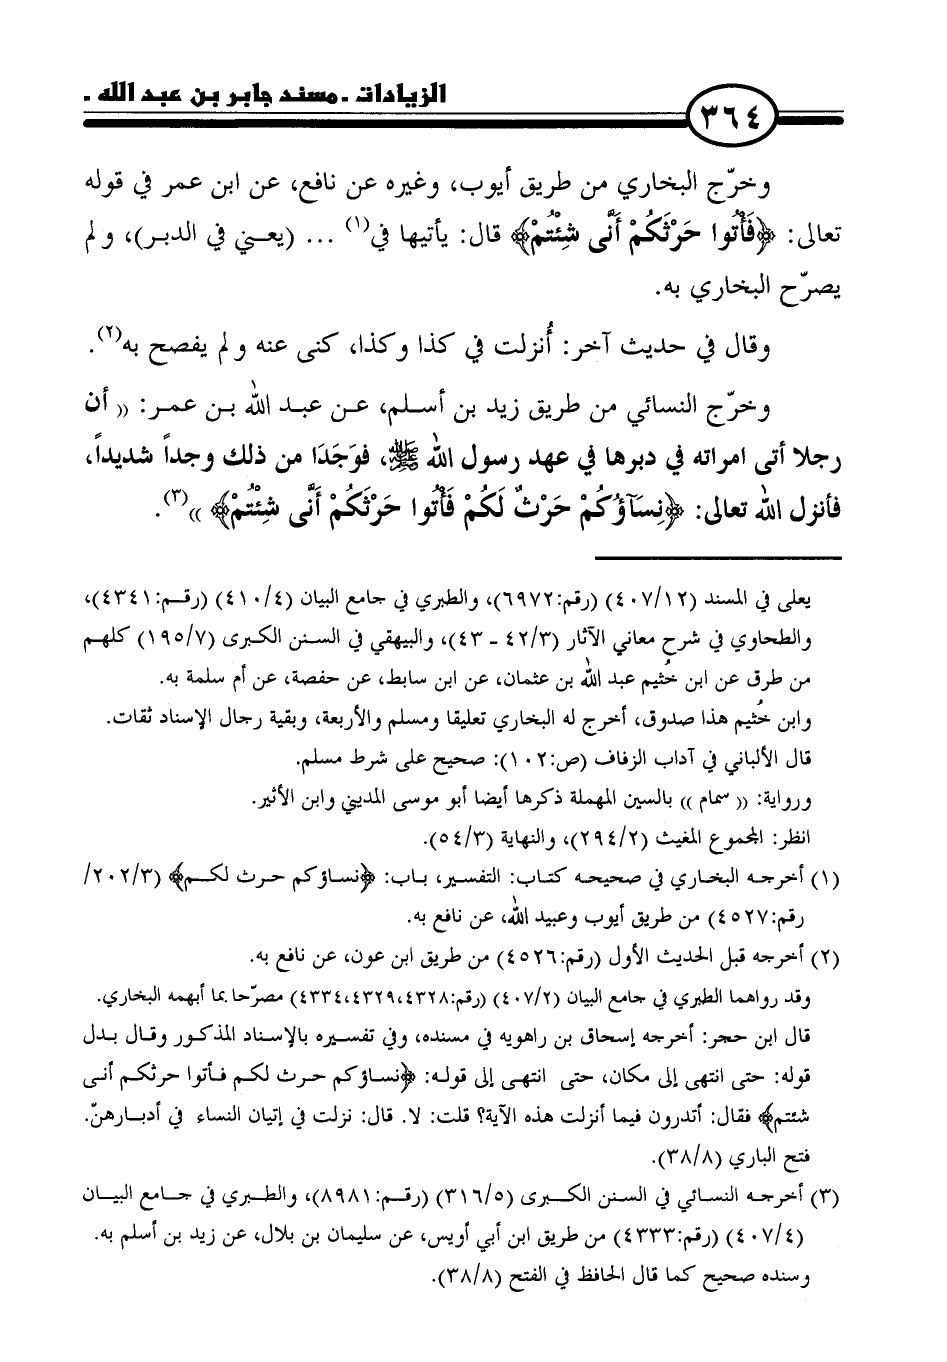 الزيادات - مسند جابر بن عبد الله -
٣٦٤
وخرّج البخاري من طريق أيوب، وغيره عن نافع، عن ابن عمر في قوله
تعالى: ﴿فَأْتُوا حَرْثَكُمْ أَنَّى شِئْتُمْ﴾ قال: يأتيها في(١) ... (يعني في الدبر)، و لم
يصرّح البخاري به.
وقال في حديث آخر: أُنزلت في كذا وكذا، كنى عنه و لم يفصح به(٢).
وخرّج النسائي من طريق زيد بن أسلم، عن عبد الله بن عمر: (( أن
رجلا أتى امراته في دبرها في عهد رسول الله ﷺ، فوَجَدَا من ذلك وجداً شديداً،
فأنزل الله تعالى: ﴿نِسَآؤُكُمْ حَرْثٌ لَكُمْ فَأْتُوا حَرْثَكُمْ أَنَّى شِئْتُمْ﴾ ))(٣).
يعلى في المسند (٤٠٧/١٢) (رقم:٦٩٧٢)، والطبري في جامع البيان (٤١٠/٤) (رقم:٤٣٤١)،
والطحاوي في شرح معاني الآثار (٤٢/٣ - ٤٣)، والبيهقي في السنن الكبرى (١٩٥/٧) كلهم
من طرق عن ابن خُثيم عبد الله بن عثمان، عن ابن سابط، عن حفصة، عن أم سلمة به.
وابن خُثيم هذا صدوق، أخرج له البخاري تعليقا ومسلم والأربعة، وبقية رجال الإسناد ثقات.
قال الألباني في آداب الزفاف (ص:١٠٢): صحيح على شرط مسلم.
ورواية: (( سمام )) بالسين المهملة ذكرها أيضا أبو موسى المديني وابن الأثير.
انظر: المجموع المغيث (٢٩٤/٢)، والنهاية (٥٤/٣).
(١) أخرجه البخاري في صحيحه كتاب: التفسير، باب: ﴿نساؤكم حرث لكم﴾ (٢٠٢/٣/
رقم:٤٥٢٧) من طريق أيوب وعبيد الله، عن نافع به.
(٢) أخرجه قبل الحديث الأول (رقم:٤٥٢٦) من طريق ابن عون، عن نافع به.
وقد رواهما الطبري في جامع البيان (٤٠٧/٢) (رقم:٤٣٢٨،٤٣٢٩،٤٣٣٤) مصرّحا بما أبهمه البخاري.
قال ابن حجر: أخرجه إسحاق بن راهويه في مسنده، وفي تفسيره بالإسناد المذكور وقال بدل
قوله: حتى انتهى إلى مكان، حتى انتهى إلى قوله: ﴿نساؤكم حرث لكم فأتوا حرثكم أنى
شئتم﴾ فقال: أتدرون فيما أنزلت هذه الآية؟ قلت: لا. قال: نزلت في إتيان النساء في أدبارهنّ.
فتح الباري (٣٨/٨).
(٣) أخرجه النسائي في السنن الكبرى (٣١٦/٥) (رقم:٨٩٨١)، والطبري في جامع البيان
(٤٠٧/٤) (رقم:٤٣٣٣) من طريق ابن أبي أويس، عن سليمان بن بلال، عن زيد بن أسلم به.
وسنده صحيح كما قال الحافظ في الفتح (٣٨/٨).